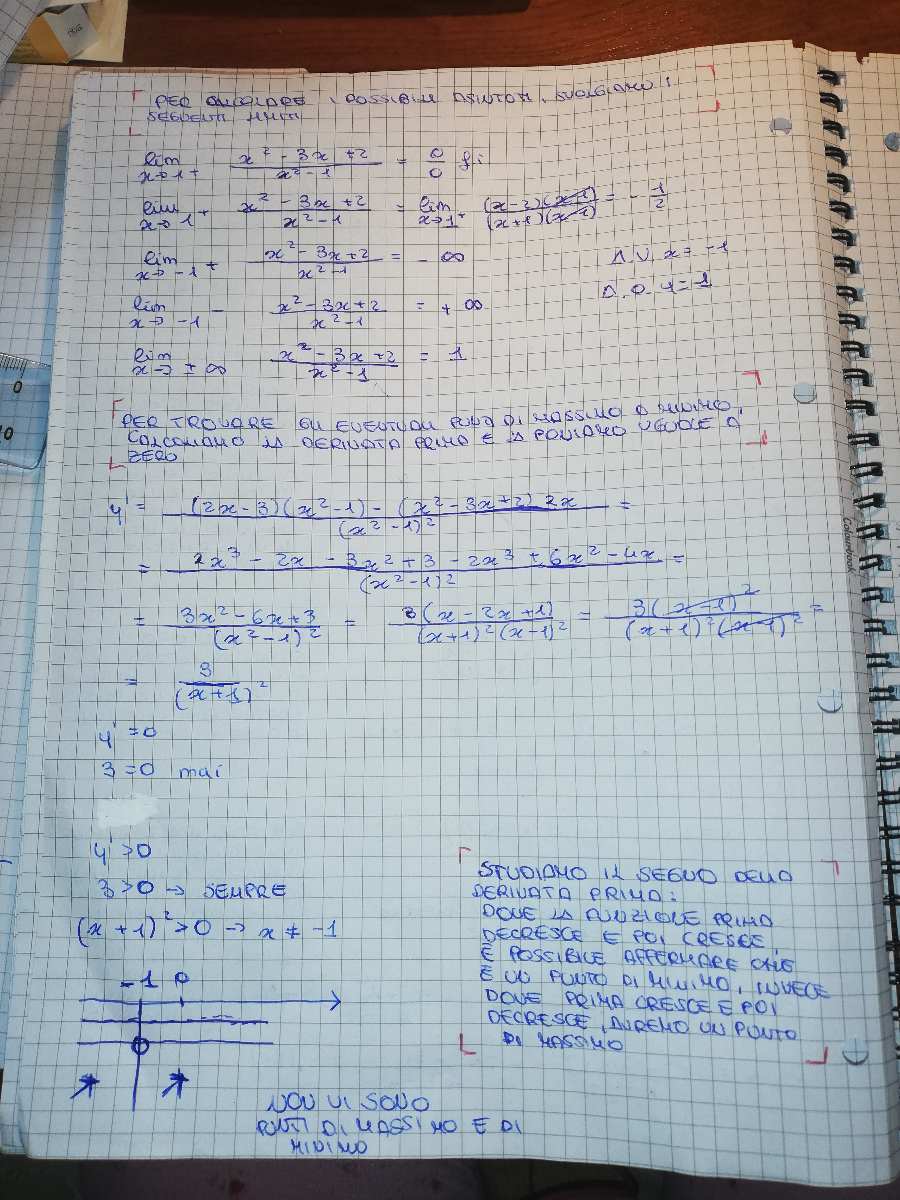 PER CALCOLARE I POSSIBILI ASINTOTI, SVOLGIAMO I
SEGUENTI LIMITI
lim x→1+ (x² - 3x + 2)/(x² - 1) = 0/0 f.i.
lim x→1+ (x² - 3x + 2)/(x² - 1) = lim x→1+ (x-2)(x-1)/(x+1)(x-1) = - 1/2
lim x→-1+ (x² - 3x + 2)/(x² - 1) = - ∞ A.V. x = -1
lim x→-1- (x² - 3x + 2)/(x² - 1) = + ∞ A.O. y = 1
lim x→±∞ (x² - 3x + 2)/(x² - 1) = 1
PER TROVARE GLI EVENTUALI PUNTI DI MASSIMO O MINIMO,
CALCOLIAMO LA DERIVATA PRIMA E LA PONIAMO UGUALE A
ZERO
y' = ((2x - 3)(x² - 1) - (x² - 3x + 2) 2x)/(x² - 1)² =
= (2x³ - 2x - 3x² + 3 - 2x³ + 6x² - 4x)/(x² - 1)² =
= (3x² - 6x + 3)/(x² - 1)² = 3(x - 2x + 1)/(x+1)²(x-1)² = 3(x-1)²/(x+1)²(x-1)² =
= 3/(x+1)²
y' = 0
3 = 0 mai
y' > 0
3 > 0 → SEMPRE
(x + 1)² > 0 → x ≠ -1
-1 0
STUDIAMO IL SEGNO DELLA
DERIVATA PRIMA:
DOVE LA FUNZIONE PRIMA
DECRESCE E POI CRESCE,
È POSSIBILE AFFERMARE CHE
È UN PUNTO DI MINIMO, INVECE
DOVE PRIMA CRESCE E POI
DECRESCE, AVREMO UN PUNTO
DI MASSIMO
NON VI SONO
PUNTI DI MASSIMO E DI
MINIMO
Colourbook
0